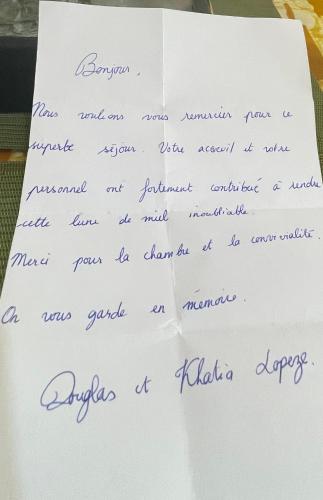 Bonjour,
Nous voulions vous remercier pour ce
superbe séjour. Votre acceuil et votre
personnel ont fortement contribué à rendre
cette lune de miel inoubliable.
Merci pour la chambre et la convivialité.
On vous garde en mémoire.
Douglas et Khatia Lopeze.